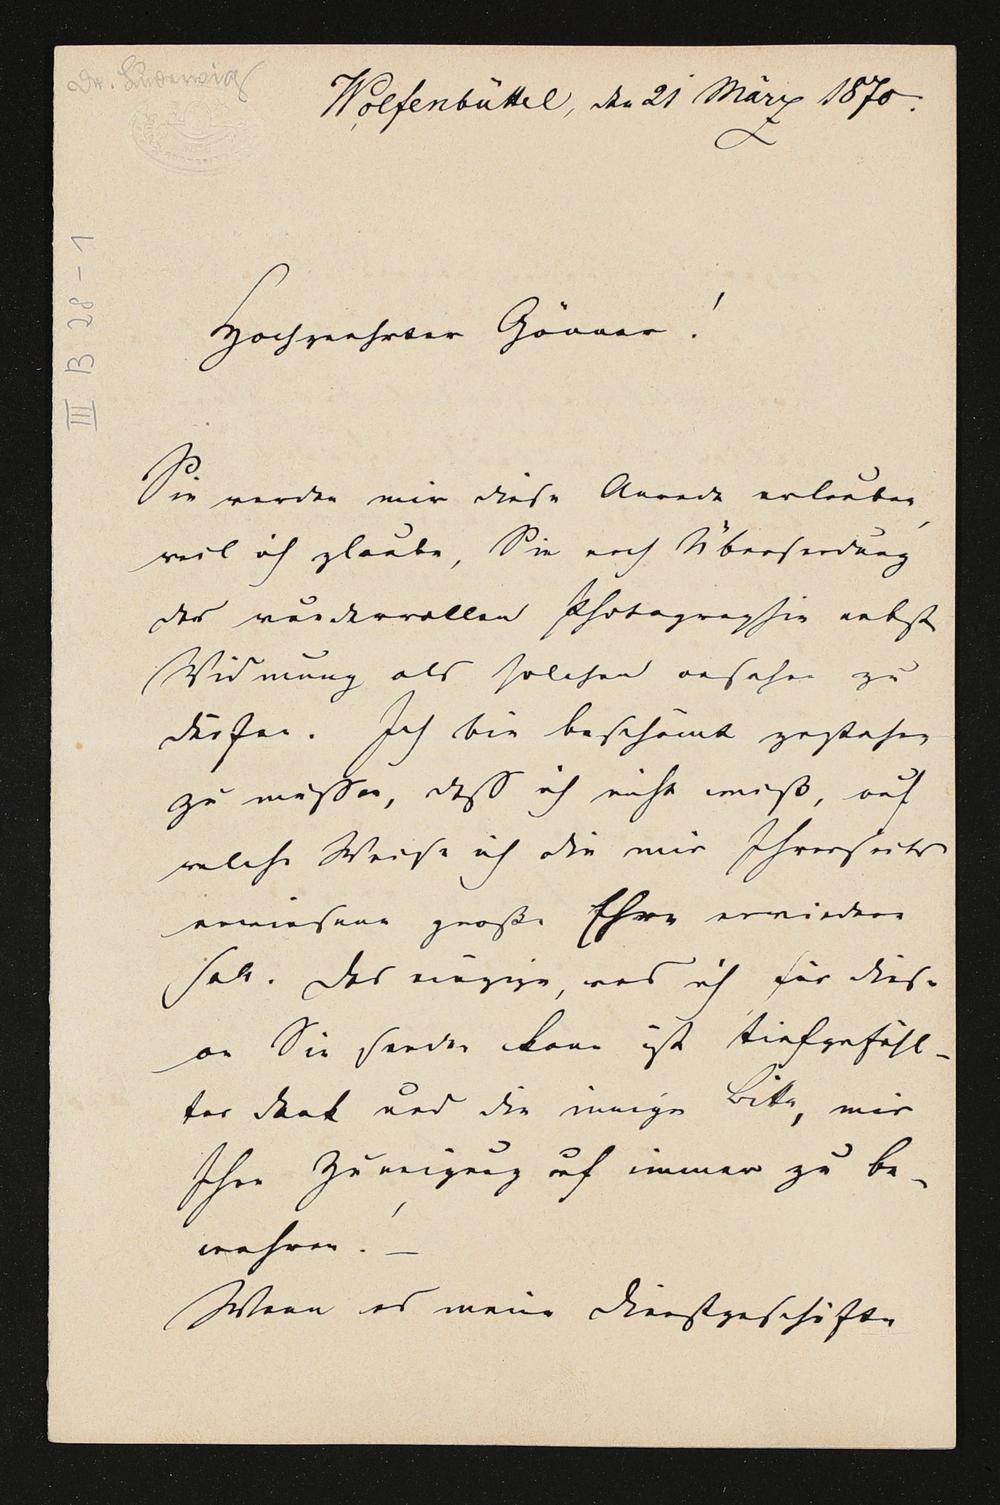 Wolfenbüttel, den 21 März 1870.
III B 28-1
Hochgeehrter Gönner!
Sie werden mir diese Anrede erlauben,
weil ich glaube, Sie nach Übersendung
der wundervollen Photographie nebst
Widmung als solchen ansehen zu
dürfen. Ich bin beschämt gestehen
zu müssen, dass ich nicht weiß, auf
welche Weise ich die mir Ihrerseits
erwiesene große Ehre erwiedern
soll. Das einzige, was ich für diese
an Sie senden kann ist tiefgefühl-
ter Dank und die innige Bitte, mir
Ihre Zuneigung auf immer zu be-
wahren! –
Wenn es meine Dienstgeschäfte